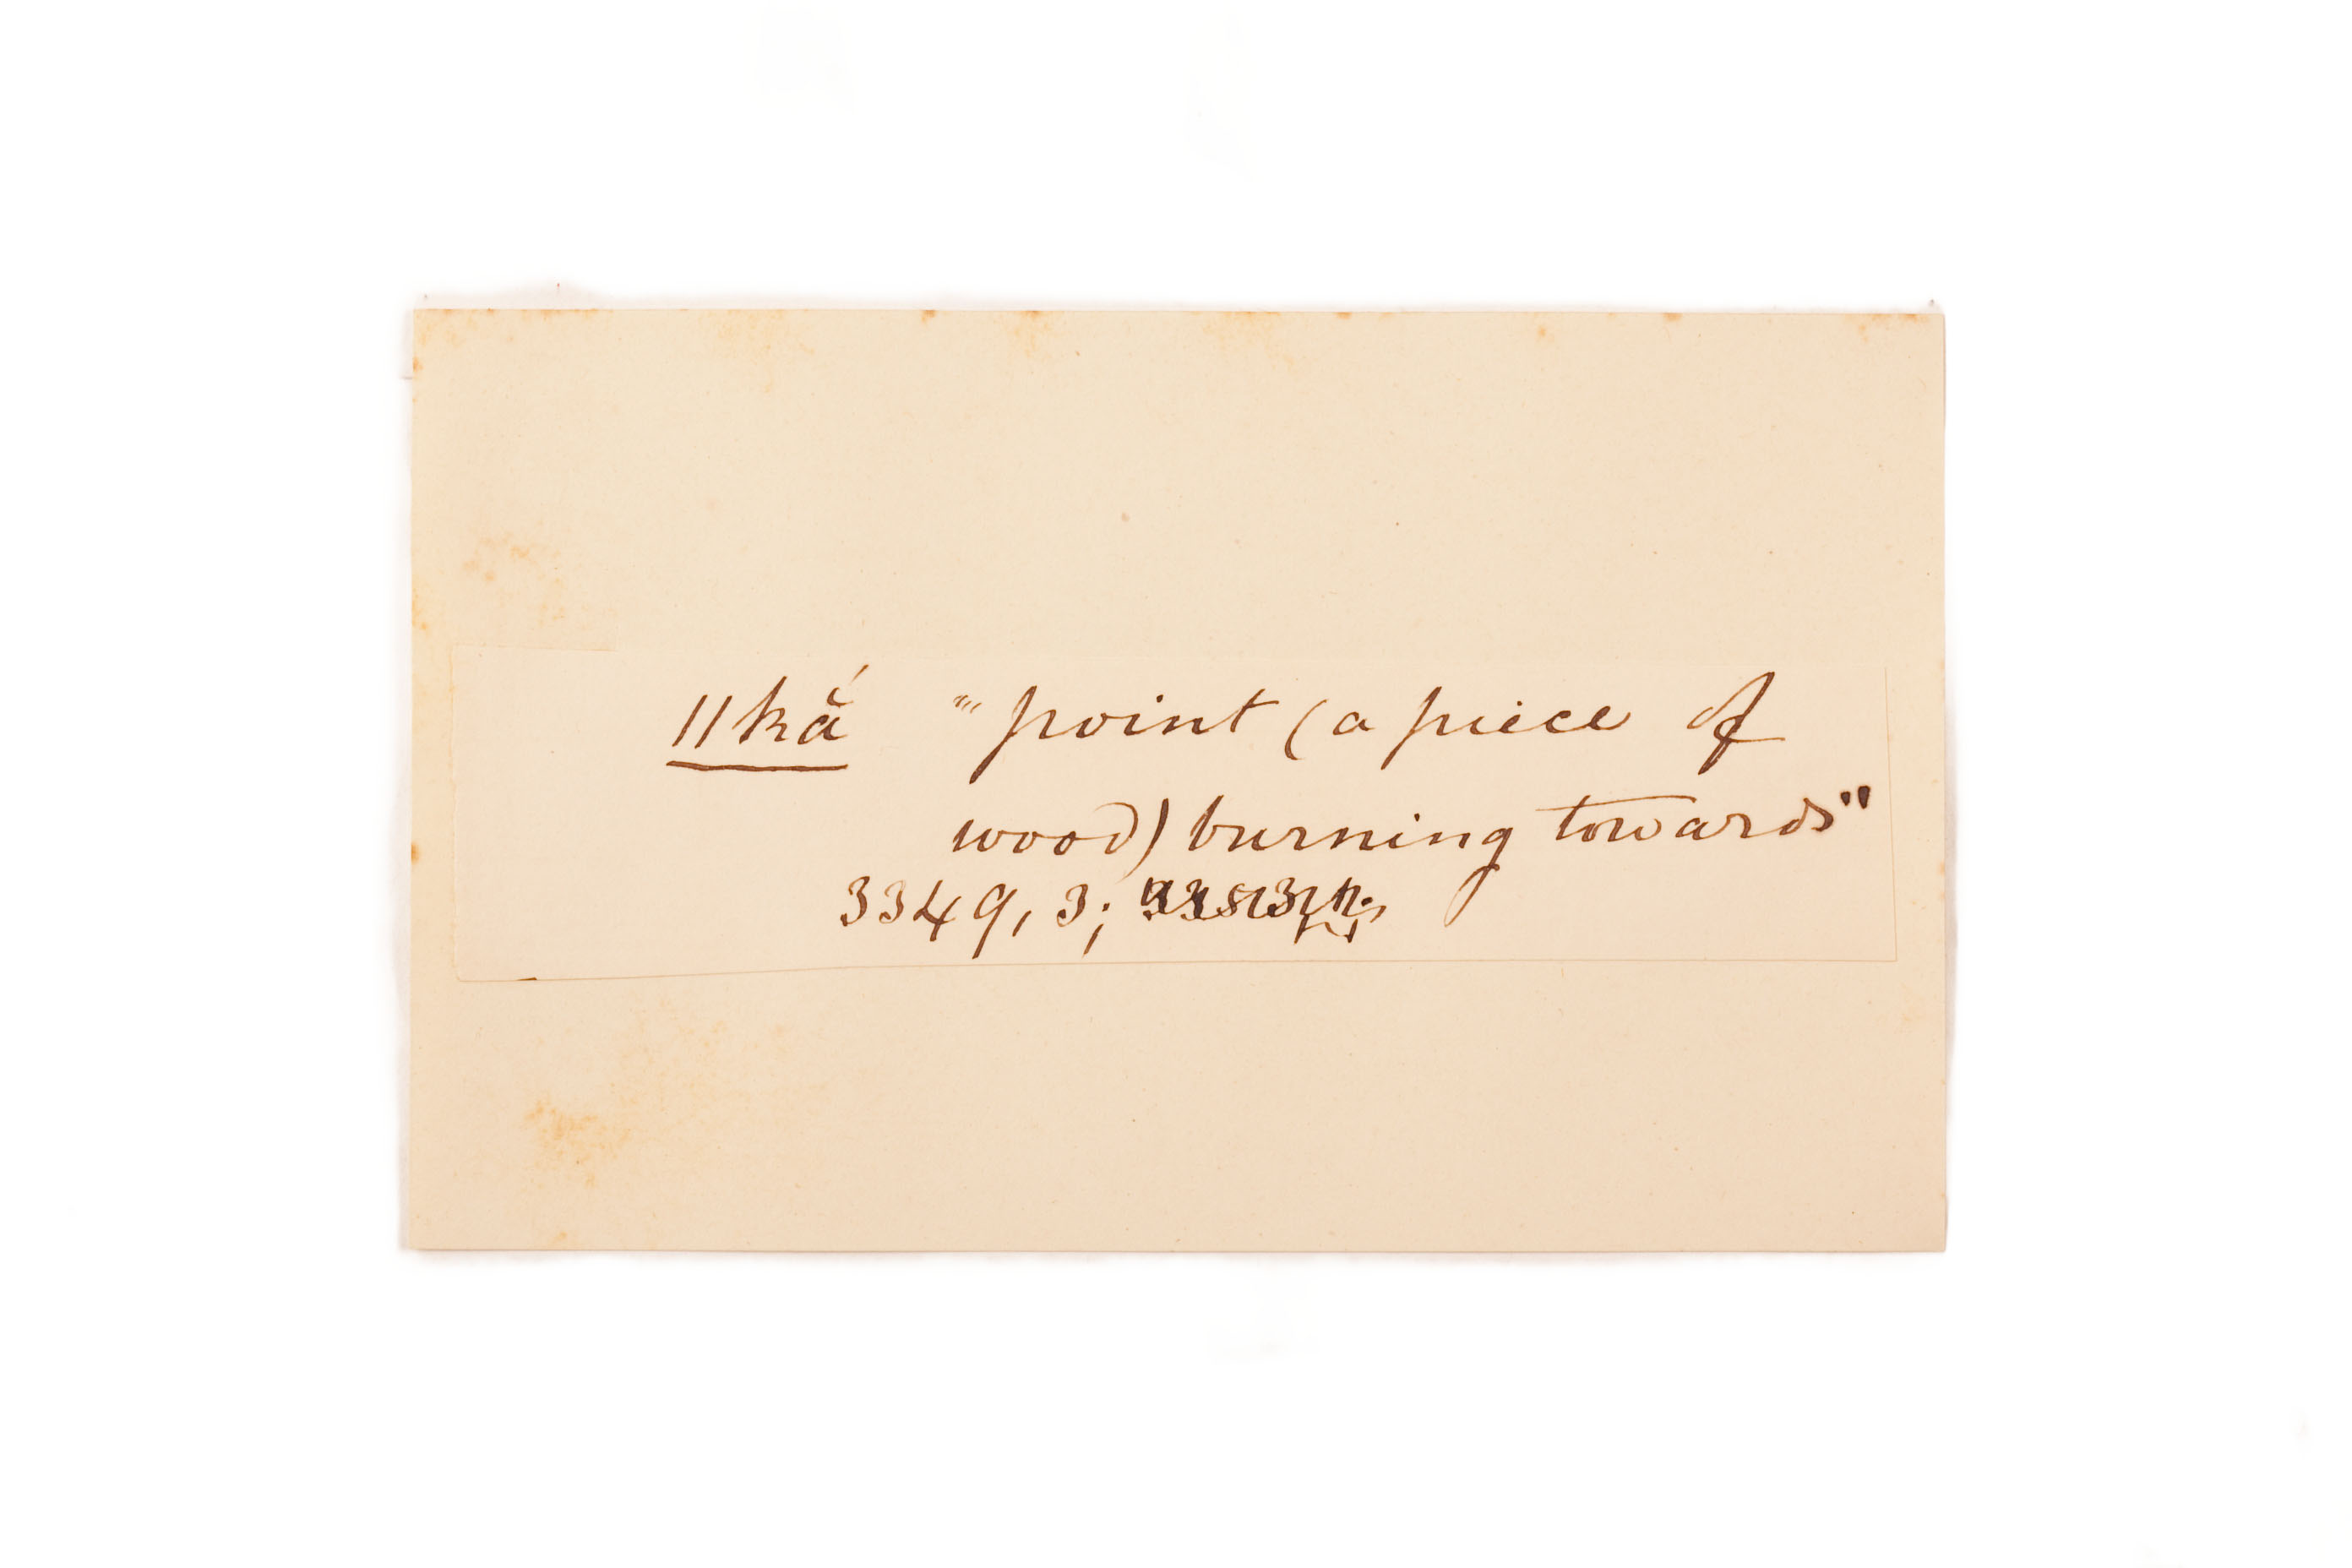 ǁkắ "point (a piece of
wood) burning towards"
3349, 3;